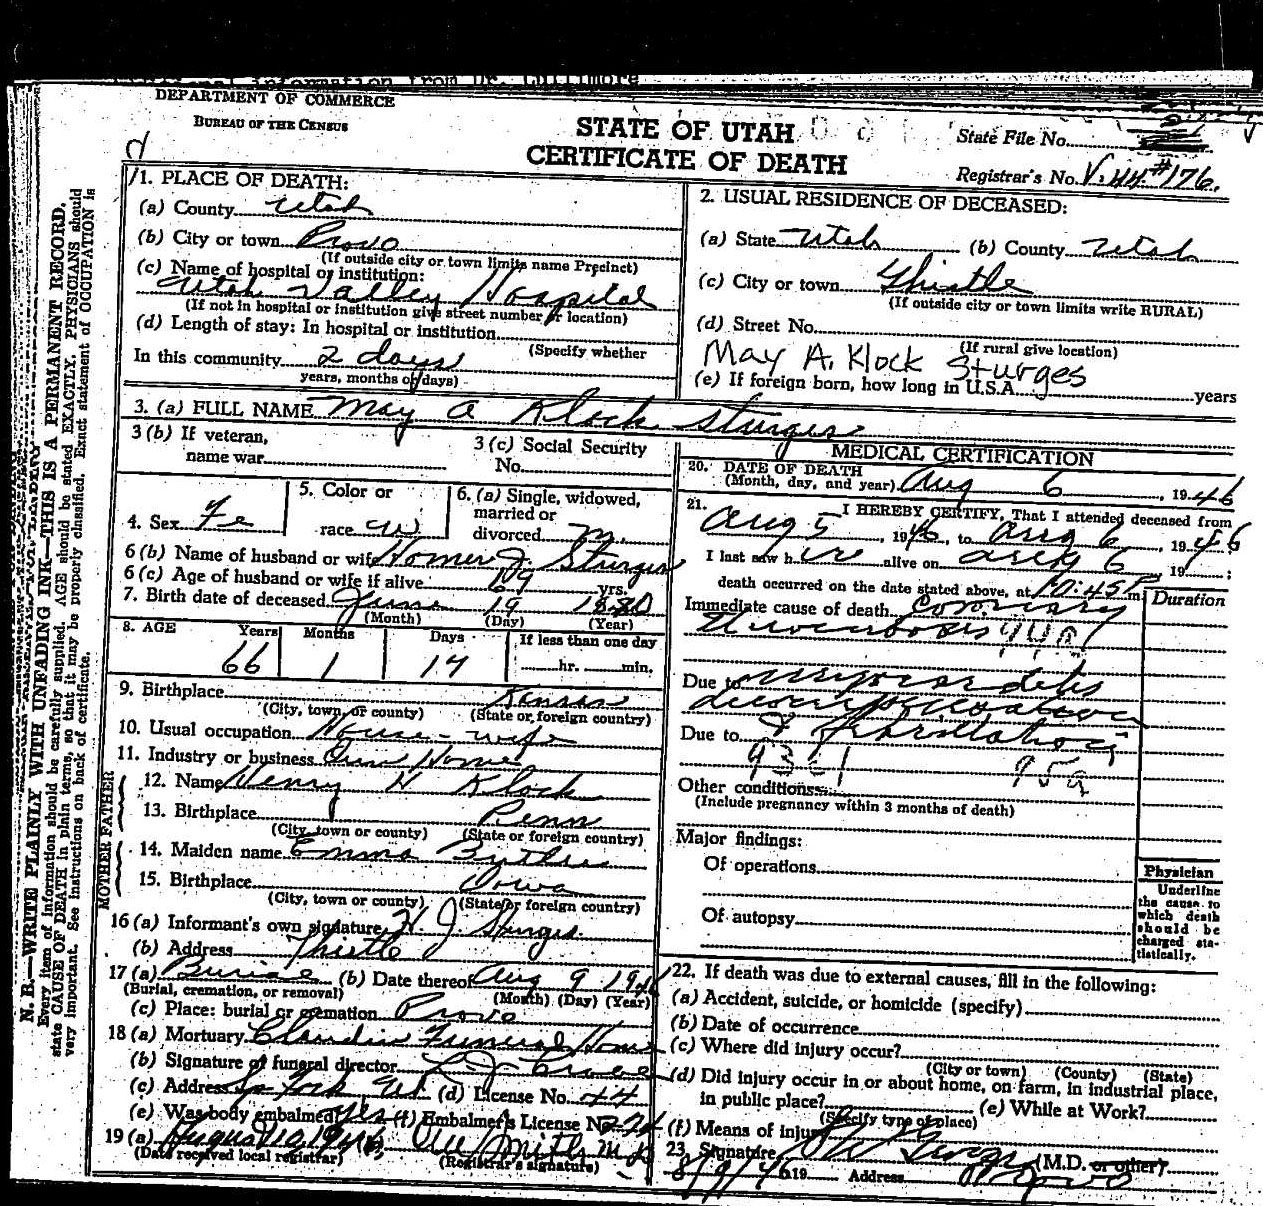 DEPARTMENT OF COMMERCE
BUREAU OF THE CENSUS
STATE OF UTAH
CERTIFICATE OF DEATH
State File No.
Registrar's No. V. 44 #176.
N. B.—WRITE PLAINLY WITH UNFADING INK—THIS IS A PERMANENT RECORD.
Every item of information should be carefully supplied. AGE should be stated EXACTLY. PHYSICIANS should
state CAUSE OF DEATH in plain terms, so that it may be properly classified. Exact statement of OCCUPATION is
very important. See instructions on back of certificate.
1. PLACE OF DEATH:
(a) County Utah
(b) City or town Provo
(If outside city or town limits name Precinct)
(c) Name of hospital or institution:
Utah Valley Hospital
(If not in hospital or institution give street number or location)
(d) Length of stay: In hospital or institution
(Specify whether
In this community 2 days
years, months or days)
2. USUAL RESIDENCE OF DECEASED:
(a) State Utah (b) County Utah
(c) City or town Thistle
(If outside city or town limits write RURAL)
(d) Street No.
(If rural give location)
May A. Klock Sturges
(e) If foreign born, how long in U.S.A. years
3. (a) FULL NAME May A Klock Sturges
3 (b) If veteran,
name war
3 (c) Social Security
No.
4. Sex Fe
5. Color or
race W
6. (a) Single, widowed,
married or
divorced M.
6 (b) Name of husband or wife Homer J. Sturges
6 (c) Age of husband or wife if alive 69 yrs.
7. Birth date of deceased June 19 1880
(Month) (Day) (Year)
8. AGE Years Months Days If less than one day
66 1 17 hr. min.
9. Birthplace Kansas
(City, town, or county) (State or foreign country)
10. Usual occupation House-wife
11. Industry or business Own Home
FATHER
12. Name Henry H Klock
13. Birthplace Penn
(City, town or county) (State or foreign country)
MOTHER
14. Maiden name Emma
15. Birthplace Iowa
(City, town or county) (State or foreign country)
16 (a) Informant's own signature H J Sturges.
(b) Address Thistle
17 (a) Burial (b) Date thereof Aug 9 1946
(Burial, cremation, or removal) (Month) (Day) (Year)
(c) Place: burial or cremation Provo
18 (a) Mortuary Claudin Funeral Home
(b) Signature of funeral director L. J.
(c) Address Sp Fork Ut. (d) License No. 44
(e) Was body embalmed Yes (f) Embalmer's License No.
19 (a) August 10 1946,
(Date received local registrar) (Registrar's signature)
MEDICAL CERTIFICATION
20. DATE OF DEATH
(Month, day, and year) Aug 6, 1946
21. I HEREBY CERTIFY, That I attended deceased from
Aug 5, 1946, to Aug 6, 1946
I last saw her alive on Aug 6, 19 ;
death occurred on the date stated above, at 10:45 P m.
Duration
Immediate cause of death Coronary
Thrombosis
Due to myocarditis
decompensation
Due to & Fibrillation
Other conditions
(Include pregnancy within 3 months of death)
Major findings:
Of operations
Of autopsy
Physician
Underline
the cause to
which death
should be
charged sta-
tistically.
22. If death was due to external causes, fill in the following:
(a) Accident, suicide, or homicide (specify)
(b) Date of occurrence
(c) Where did injury occur?
(City or town) (County) (State)
(d) Did injury occur in or about home, on farm, in industrial place,
in public place? (e) While at Work?
(Specify type of place)
(f) Means of injury
23. Signature (M.D. or other)
8/9/46 19 Address Provo